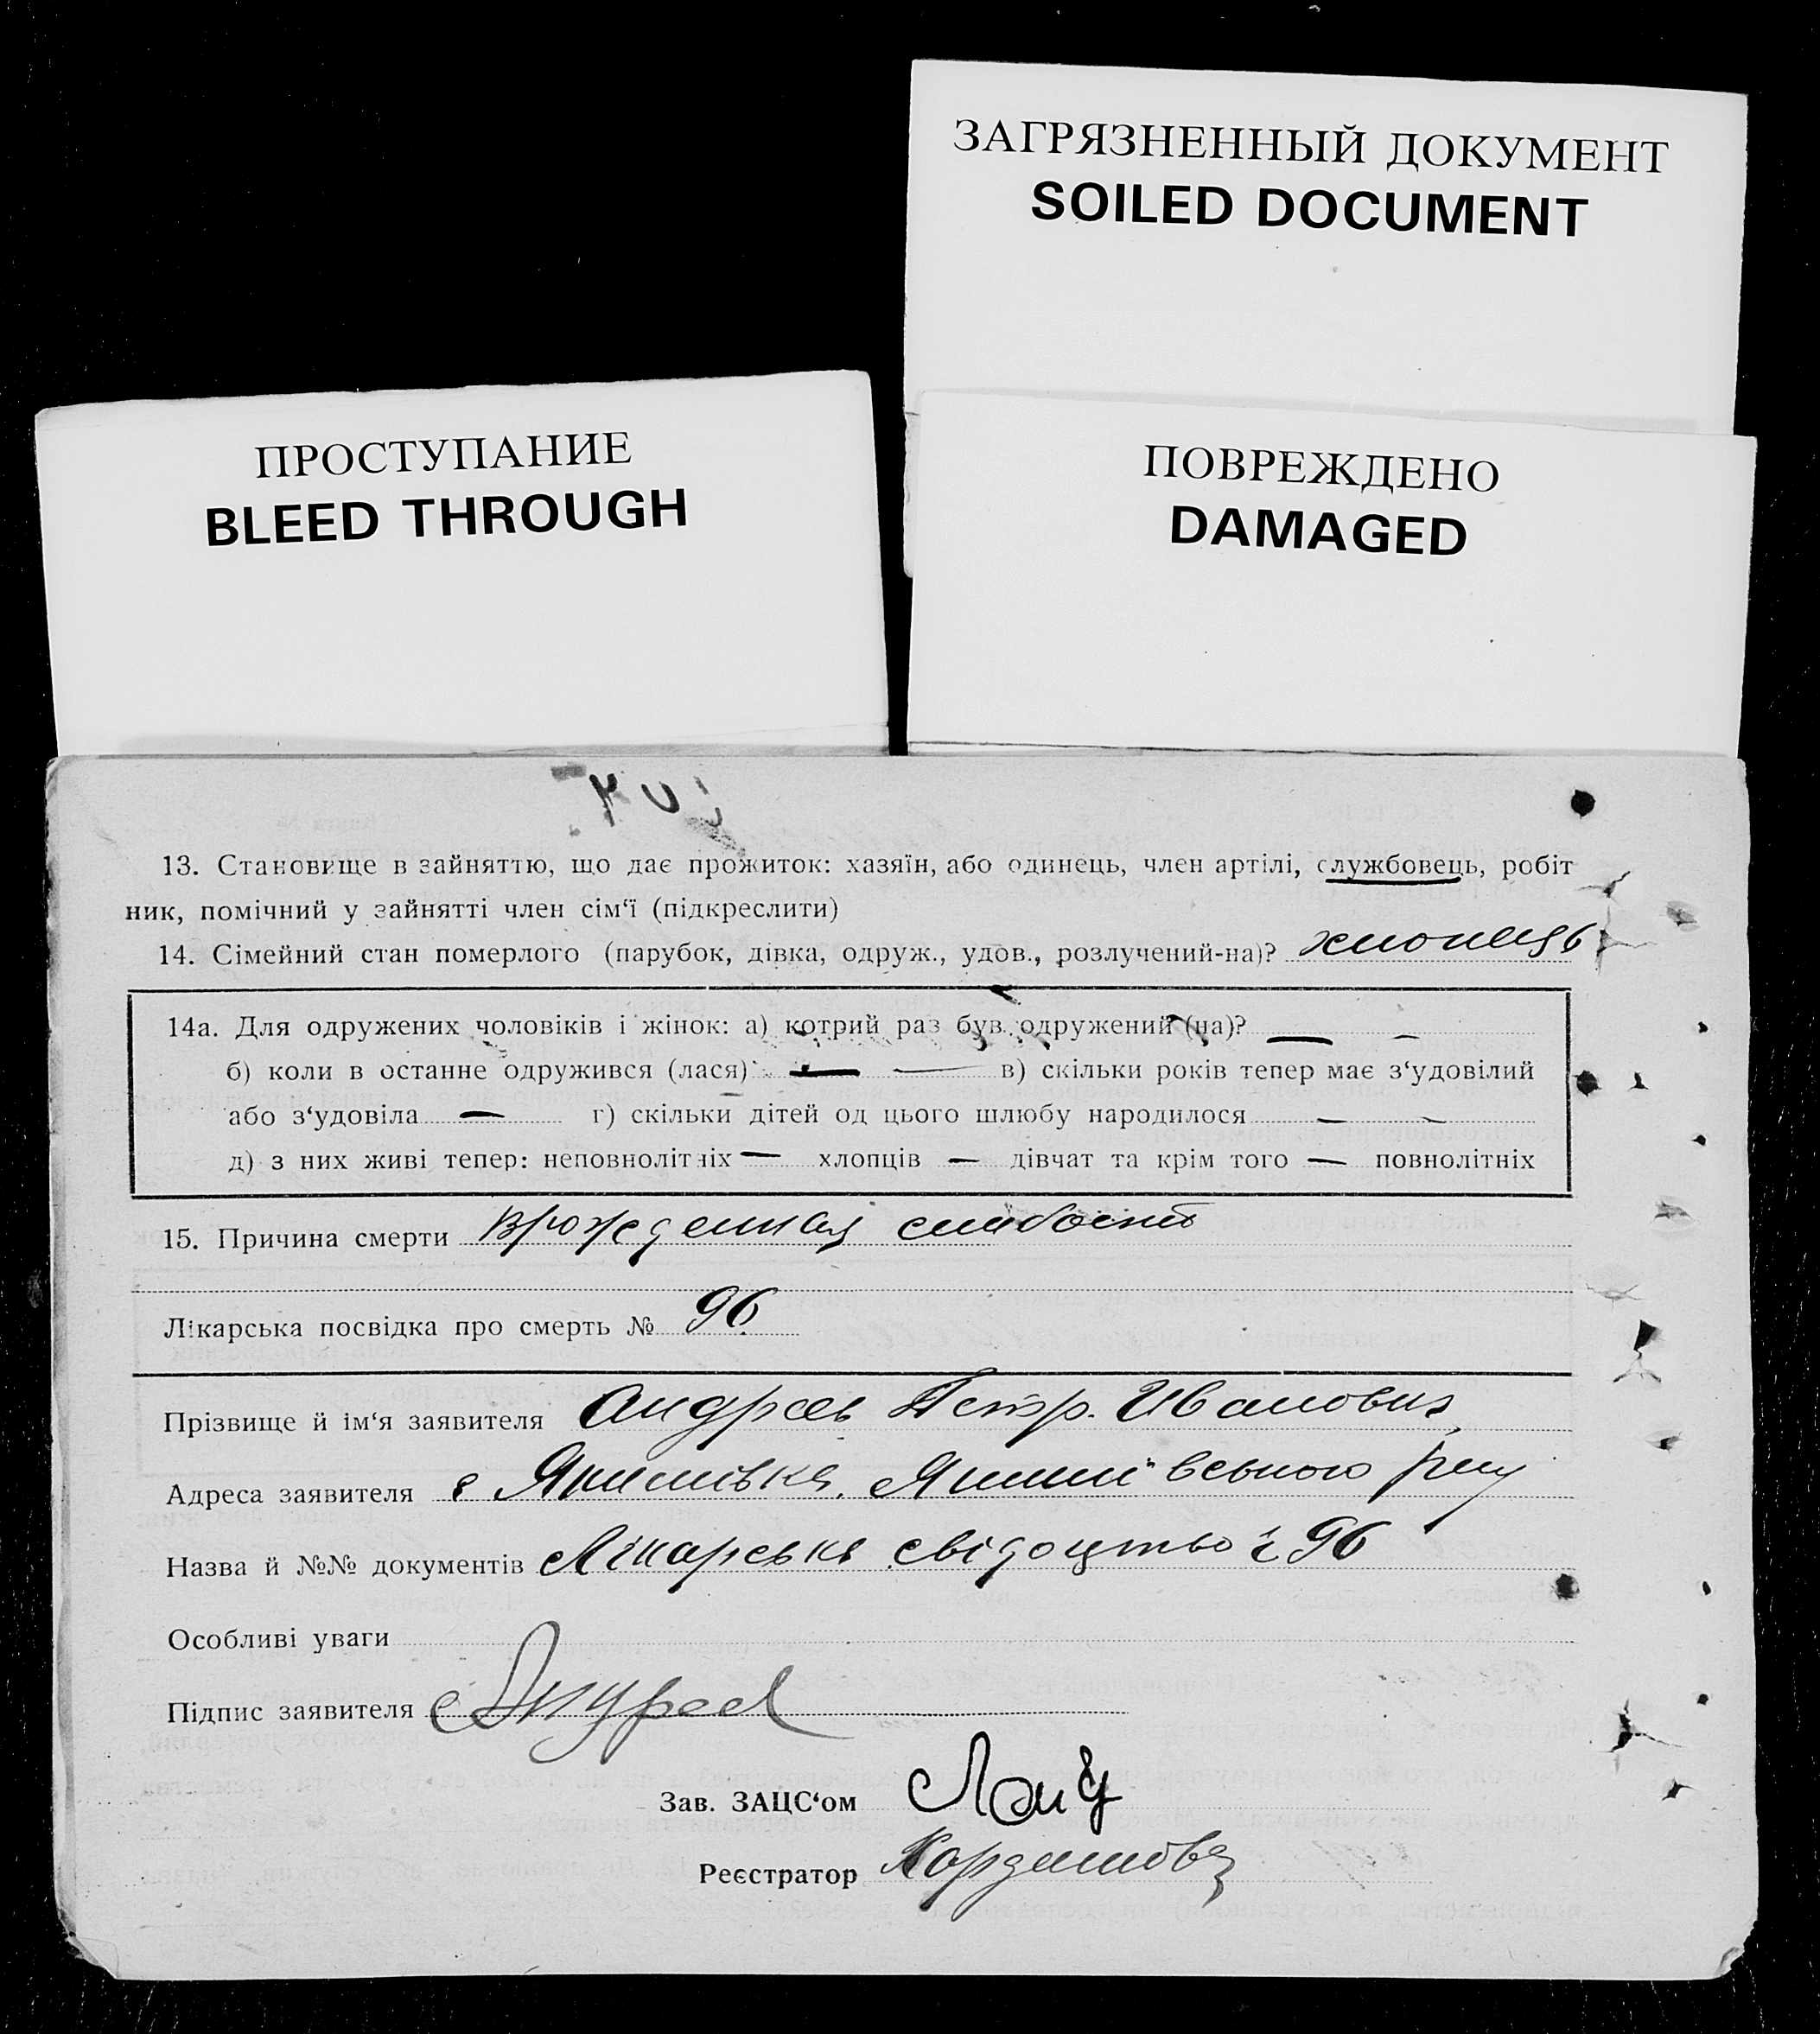 ЗАГРЯЗНЕННЫЙ ДОКУМЕНТ
SOILED DOCUMENT
ПРОСТУПАНИЕ
BLEED THROUGH
ПОВРЕЖДЕНО
DAMAGED
13. Становище в зайняттю, що дає прожиток: хазяїн, або одинець, член артілі, службовець, робіт
ник, помічний у зайнятті член сім‘ї (підкреслити)
14. Сімейний стан померлого (парубок, дівка, одруж., удов., розлучений-на)? хлопець
14а. Для одружених чоловіків і жінок: а) котрий раз був одружений (на)? — —
б) коли в останне одружився (лася) — — в) скільки років тепер має з‘удовілий
або з‘удовіла — г) скільки дітей од цього шлюбу народилося — —
д) з них живі тепер: неповнолітніх — хлопців — дівчат та крім того — повнолітніх
15. Причина смерти врожденная слабость
Лікарська посвідка про смерть № 96
Прізвище й ім‘я заявителя Андреев Петр. Иванович
Адреса заявителя с Якимівка, Якимівського рну
Назва й №№ документів Лікарське свідоцтво 96
Особливі уваги
Підпис заявителя Андреев
Зав. ЗАЦС‘ом
Реєстратор